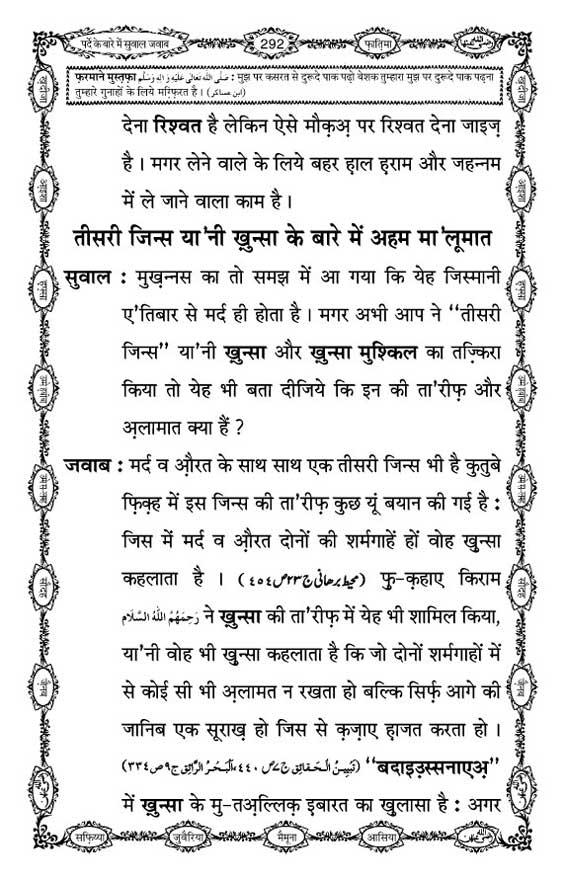 पर्दे के बारे में सुवाल जवाब 292 फ़ातिमा
फ़रमाने मुस्तफ़ा صَلَّى اللهُ تَعَالٰى عَلَيْهِ وَاٰلِهٖ وَسَلَّم : मुझ पर कसरत से दुरूदे पाक पढ़ो बेशक तुम्हारा मुझ पर दुरूदे पाक पढ़ना
तुम्हारे गुनाहों के लिये मग़्फ़िरत है। (ابن عساكر)
देना रिश्वत है लेकिन ऐसे मौक़अ़ पर रिश्वत देना जाइज़
है। मगर लेने वाले के लिये बहर ह़ाल ह़राम और जहन्नम
में ले जाने वाला काम है।
तीसरी जिन्स या'नी ख़ुन्सा के बारे में अहम मा'लूमात
सुवाल : मुख़न्नस का तो समझ में आ गया कि येह जिस्मानी
ए'तिबार से मर्द ही होता है। मगर अभी आप ने "तीसरी
जिन्स" या'नी ख़ुन्सा और ख़ुन्सा मुश्किल का तज़्किरा
किया तो येह भी बता दीजिये कि इन की ता'रीफ़ और
अ़लामात क्या हैं ?
जवाब : मर्द व औ़रत के साथ साथ एक तीसरी जिन्स भी है कुतुबे
फ़िक़्ह में इस जिन्स की ता'रीफ़ कुछ यूं बयान की गई है :
जिस में मर्द व औ़रत दोनों की शर्मगाहें हों वोह ख़ुन्सा
कहलाता है । (محیط برھانی ج۲۳ص٤٥٤) फु-क़हाए किराम
رَحِمَهُمُ اللهُ السَّلَام ने ख़ुन्सा की ता'रीफ़ में येह भी शामिल किया,
या'नी वोह भी ख़ुन्सा कहलाता है कि जो दोनों शर्मगाहों में
से कोई सी भी अ़लामत न रखता हो बल्कि सिर्फ़ आगे की
जानिब एक सूराख़ हो जिस से क़ज़ाए ह़ाजत करता हो ।
(تبيينُ الْحقائق ج٧ص ٤٤٠،اَلْبَحْرُ الرَّائِق ج٩ص٣٣٤) "बदाइउ़स्सनाएअ़"
में ख़ुन्सा के मु-तअ़ल्लिक़ इबारत का खुलासा है : अगर
सफ़िय्या जुवैरिया मैमूना आसिया